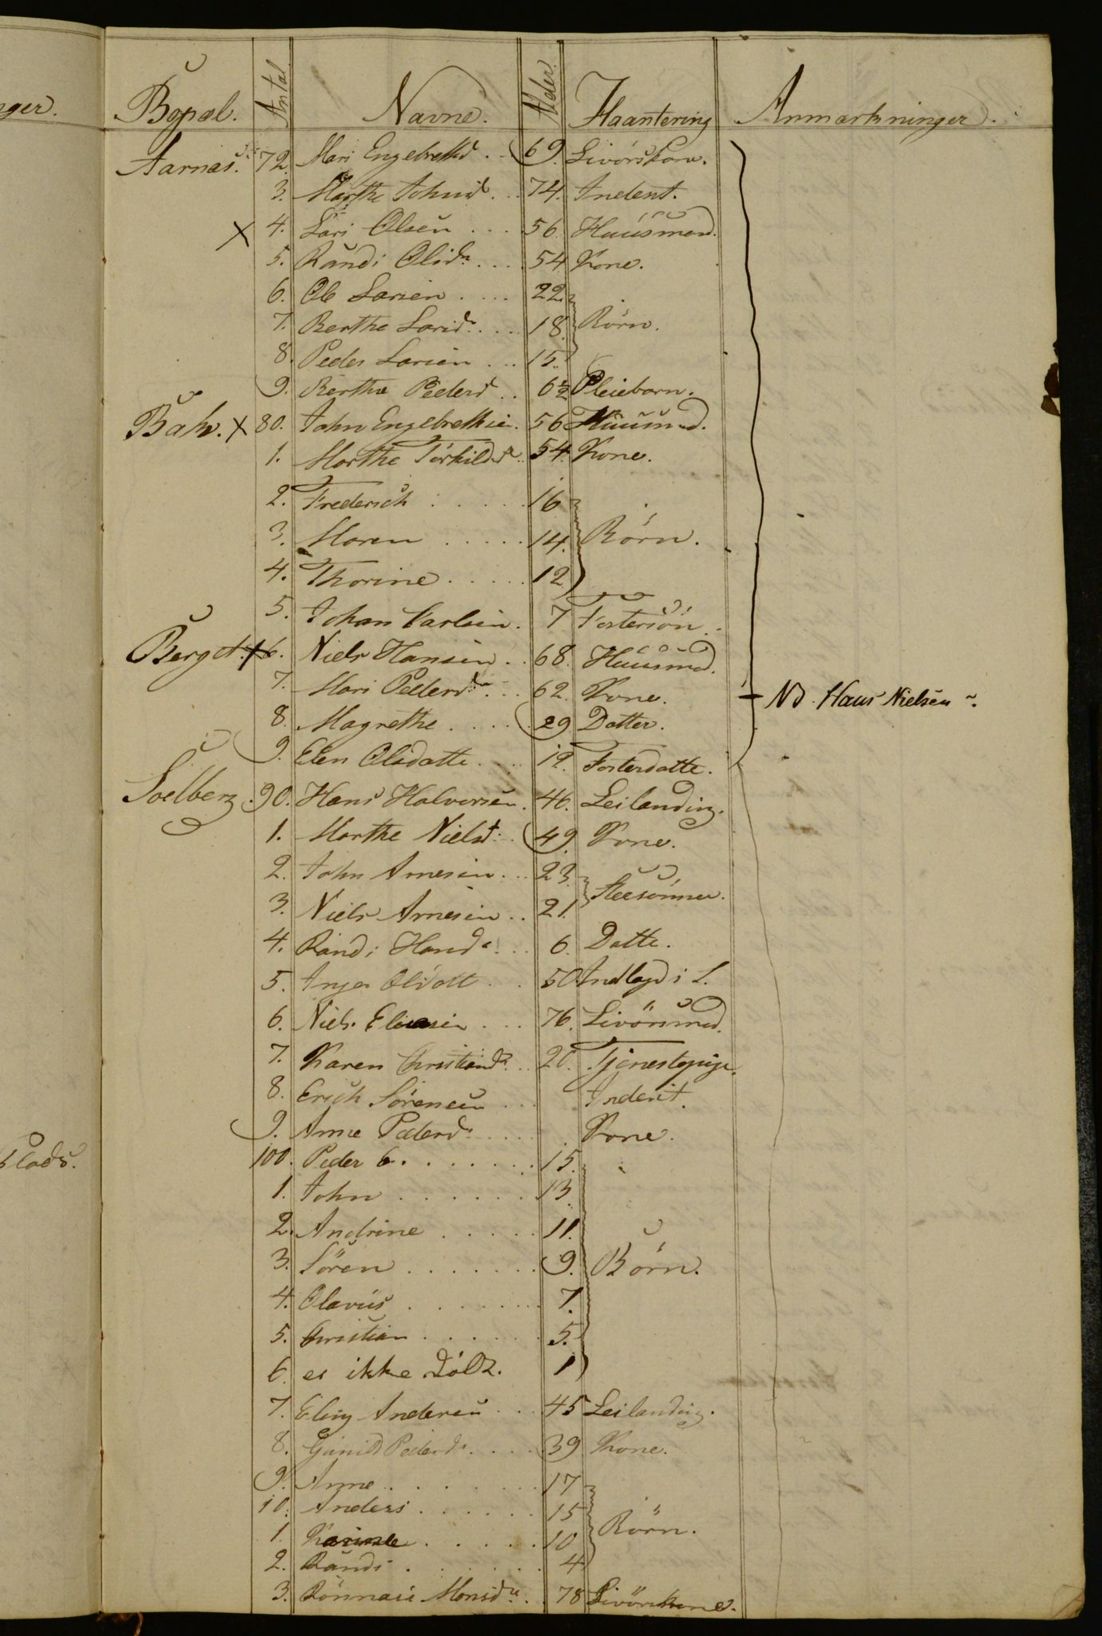 nger.
Bopæl. Antal Navne. Alder. Haantering Anmærkninger.
Aarnæs. 72. Mari Engebretsd. 69. Livörskone.
3. Marthe Johnsd. 74. Inderst.
X 4. Lars Olsen 56. Huusmand.
5. Randi Olsd. 54 Kone.
6. Ole Larsen 22
7. Berthe Larsd. 18. Börn.
8. Peder Larsen 15.
9. Berthe Pedersd. 6½ Pleiebarn.
Bak. X 80. John Engebrethsen. 56 Huusmd.
1. Marthe Törkildsd. 54. Kone.
2. Frederich 16
3. Maren 14. Börn.
4. Thorine 12
5. Johan Carlsen. 7 Fostersön.
Berget. X 6. Niels Hansen 68. Huusmd.
7. Mari Pedersd. 62. Kone. Nd. Hans Nielsen
8. Magrethe 29 Datter.
9. Elen Olsdatte. 19. Fosterdatte.
Soelberg. 90. Hans Halvorsen. 46. Leilænding.
1. Marthe Nielsd. 49. Kone.
2. John Arnesen 23.
3. Niels Arnesen 21. Steesönner.
4. Randi Hansd. 6. Datte.
5. Inger Olsdatt 50 Indlagd i L.
6. Niels 76. Livörsmd.
7. Karen Christiansd. 20. Tjenestepige.
8. Erich Sörensen Inderst.
9. Anne Pedersd. Kone.
plads.
100. Peder 15.
1. John 13
2. Andrine 11.
3. Sören 9. Börn.
4. Olavus 7.
5. Christian 5.
6. er ikke döbt. 1
7. Elling Andersen 45 Leilænding.
8. Gunild Pedersd. 39 Kone.
9. Anne 17
10. Anders 15
1. 10 Börn.
2. Randi 4
3. Rönnaug Monsd. 78 Livörskone.